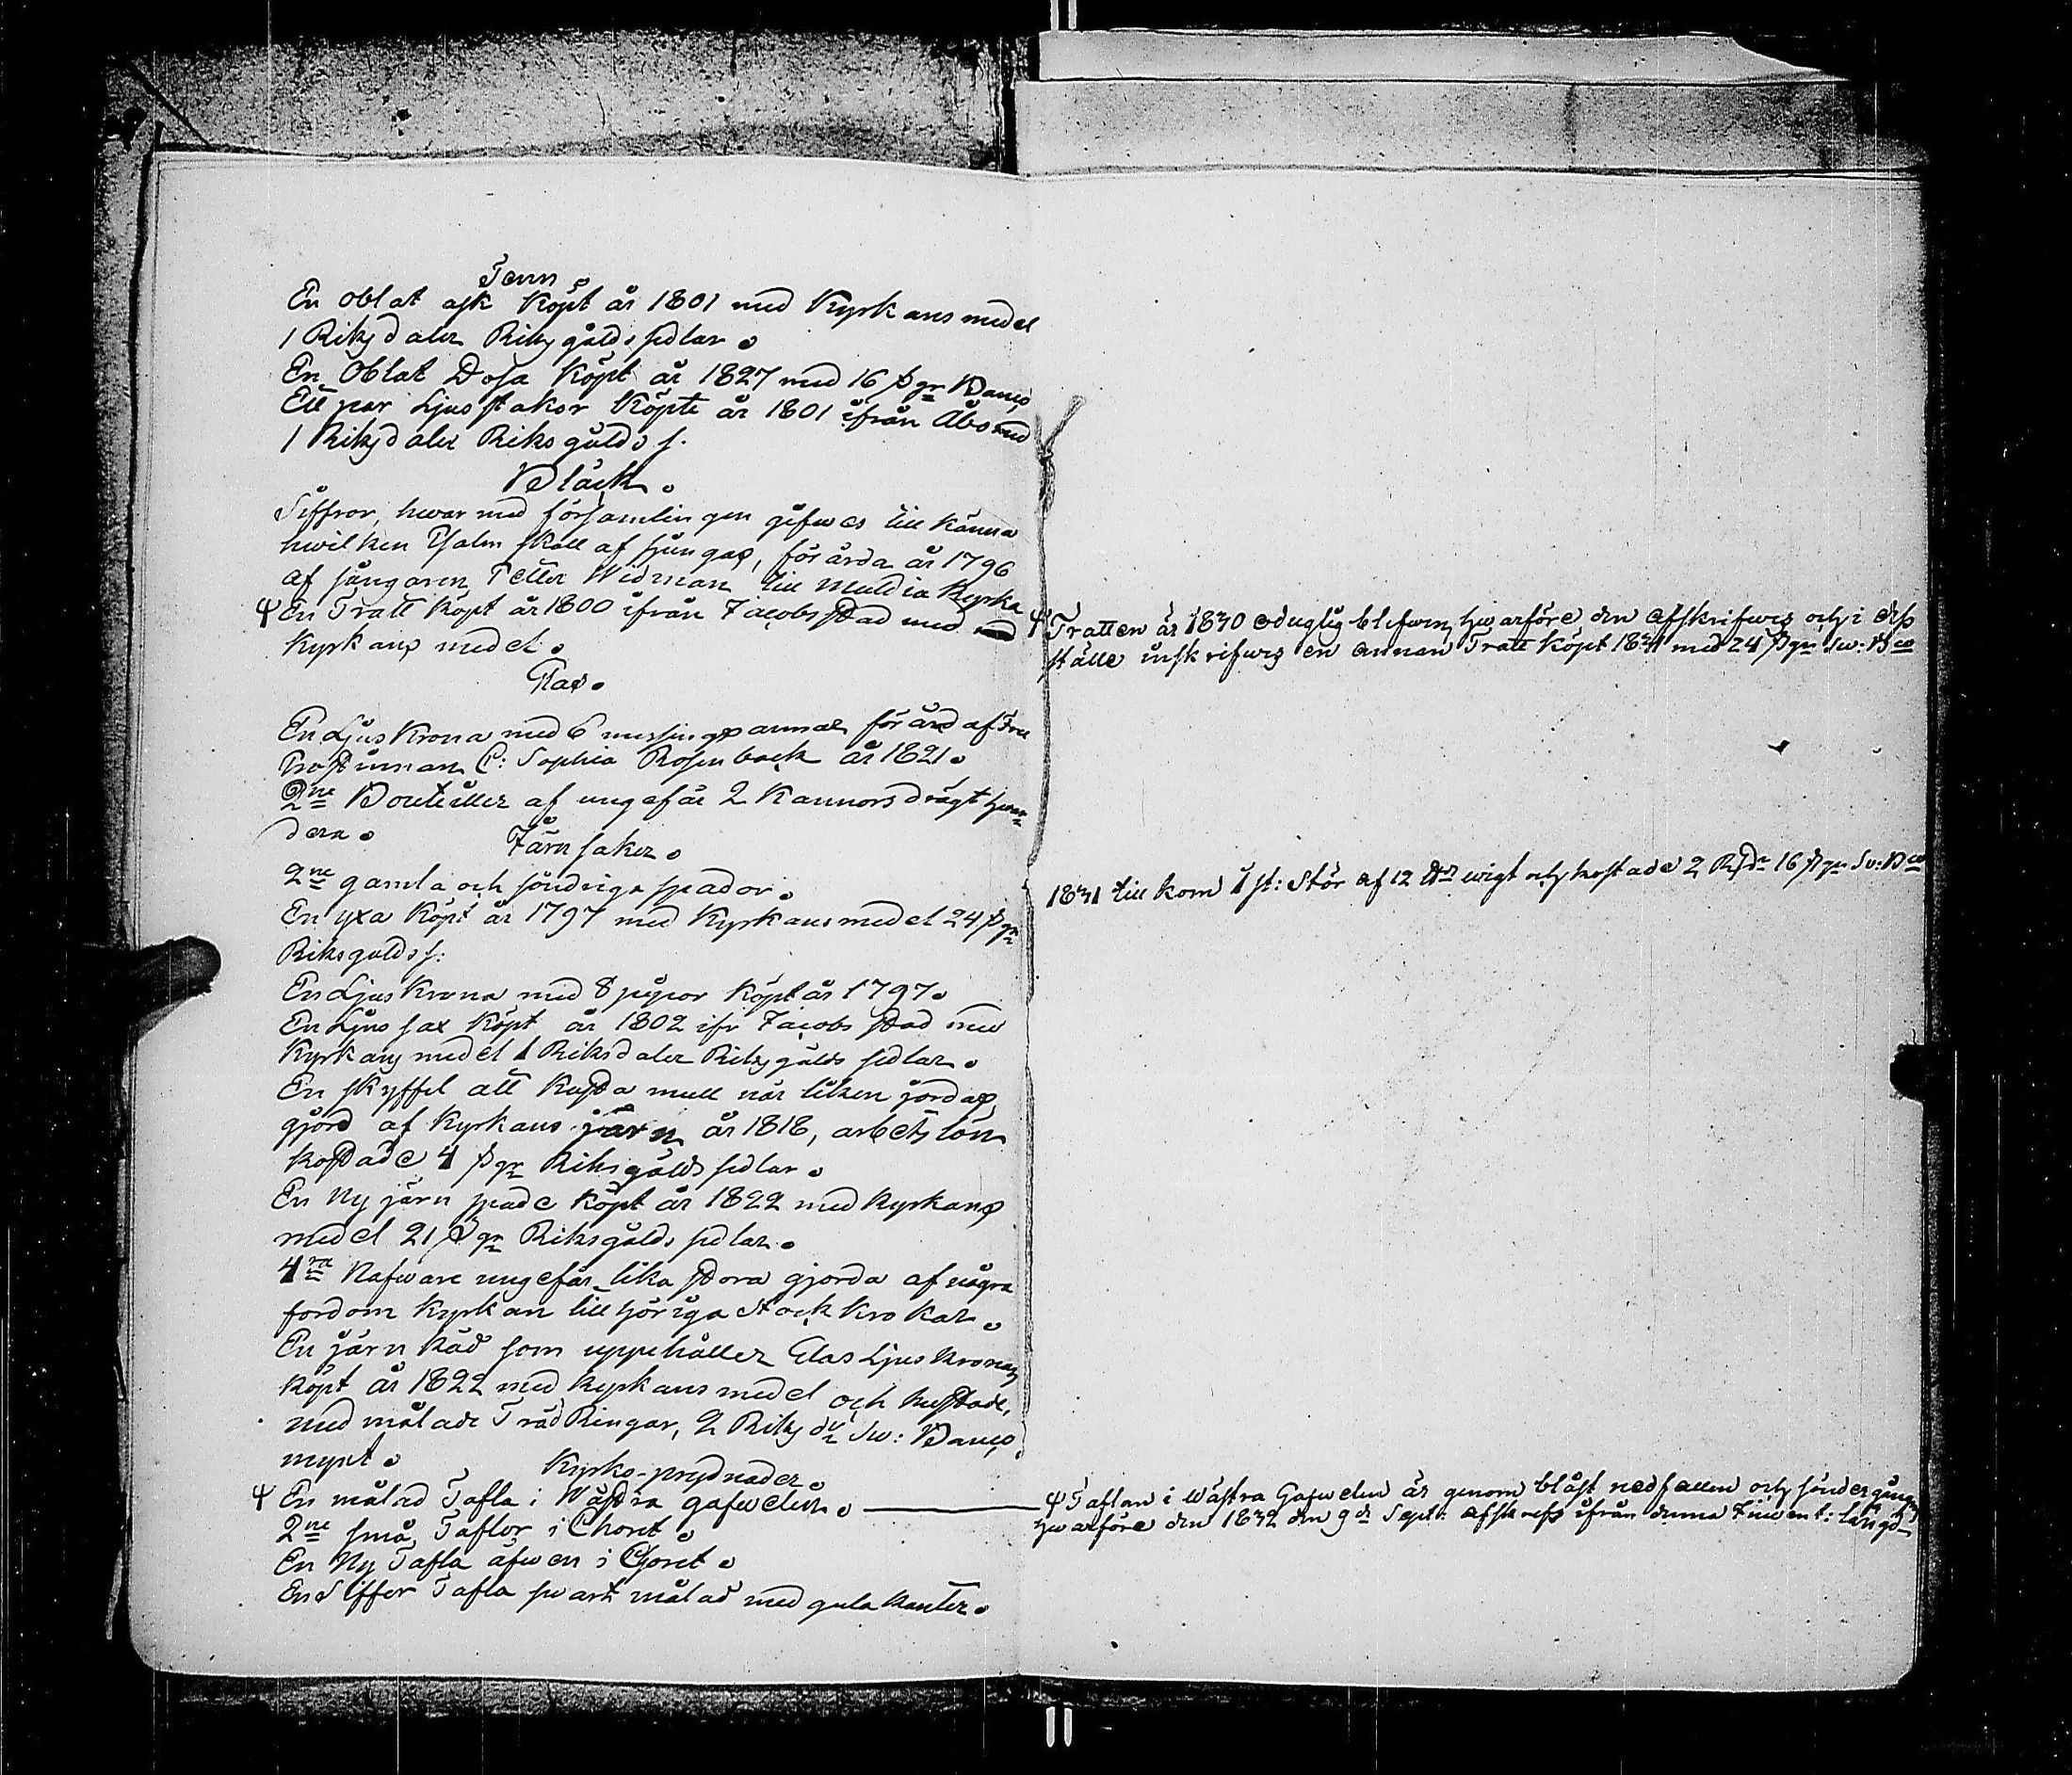 Tenn
En oblat ask köpt år 1801 med Kyrkans medel
1 Riksdaler Riksgälds sedlar.
En Oblat Dosa köpt år 1827 med 16 sgr Banco
Ett par Ljusstakar köpte år 1801 ifrån Åbo med
1 Riksdaler Riksgälds s.
Bläck.
Siffror, hwarmed församlingen gifwes till känna
hwilken Psalm skall afsjungas, förärda år 1796
af sångaren Petter Widman till Muldia Kyrka
Ψ En Tratt köpt år 1800 ifrån Jacobsstad med
Kyrkans medel.
Glas.
En Ljus Krona med 6 messings armar förärd af Fru
Prostinnan C: Sophia Rosenback år 1821.
2ne Bouteiller af ungefär 2 Kannors drägt hwar-
dera.
Järnsaker.
2ne gamla och söndriga spador.
En yxa köpt år 1797 med Kyrkans medel 24 sgr
Riksgälds s:
En Ljus Krona med 8 pipor köpt år 1797.
En Ljus sax köpt år 1802 ifr Jacobsstad med
Kyrkans medel 1 Riksdaler Riksgälds sedlar.
En skyffel att kasta mull när liken jordas,
gjord af Kyrkans järn år 1818, arbetslön
kostade 4 sgr Riksgälds sedlar.
En Ny järn spade köpt år 1822 med Kyrkans
medel 21 sgr Riksgälds sedlar.
4ra Nafware ungefär lika stora gjorda af några
fordom Kyrkan tillhöriga Stock Krokar.
En järn käd som uppehåller Glas Ljus Kronan
köpt år 1822 med Kyrkans medel och kostade,
med målade Träd Ringar, 2 Riksdr Sw: Banco
mynt.
Kyrko-prydnader.
Ψ En målad Tafla i Wästra gafwelen.
2ne små Taflor i Choret.
En Ny Tafla äfwen i Choret.
En Siffer Tafla swart målad med gula kanter.
Ψ Tratten är 1830 oduglig blifwen, hwarföre den afskrifwes och i dess
ställe inskrifwes en annan Tratt köpt 1831 med 24 sgr Sw: Bco
1831 till kom 1 st: Stör af 12 wigt och kostade 2 Rdr 16 sgr Sw: Bco
Ψ Taflan i Wästra Gafwelen är genom blåst nedfallen och söndergången
hwarföre den 1832 den 9de Sept: afskrefs ifrån denna Invent: längd